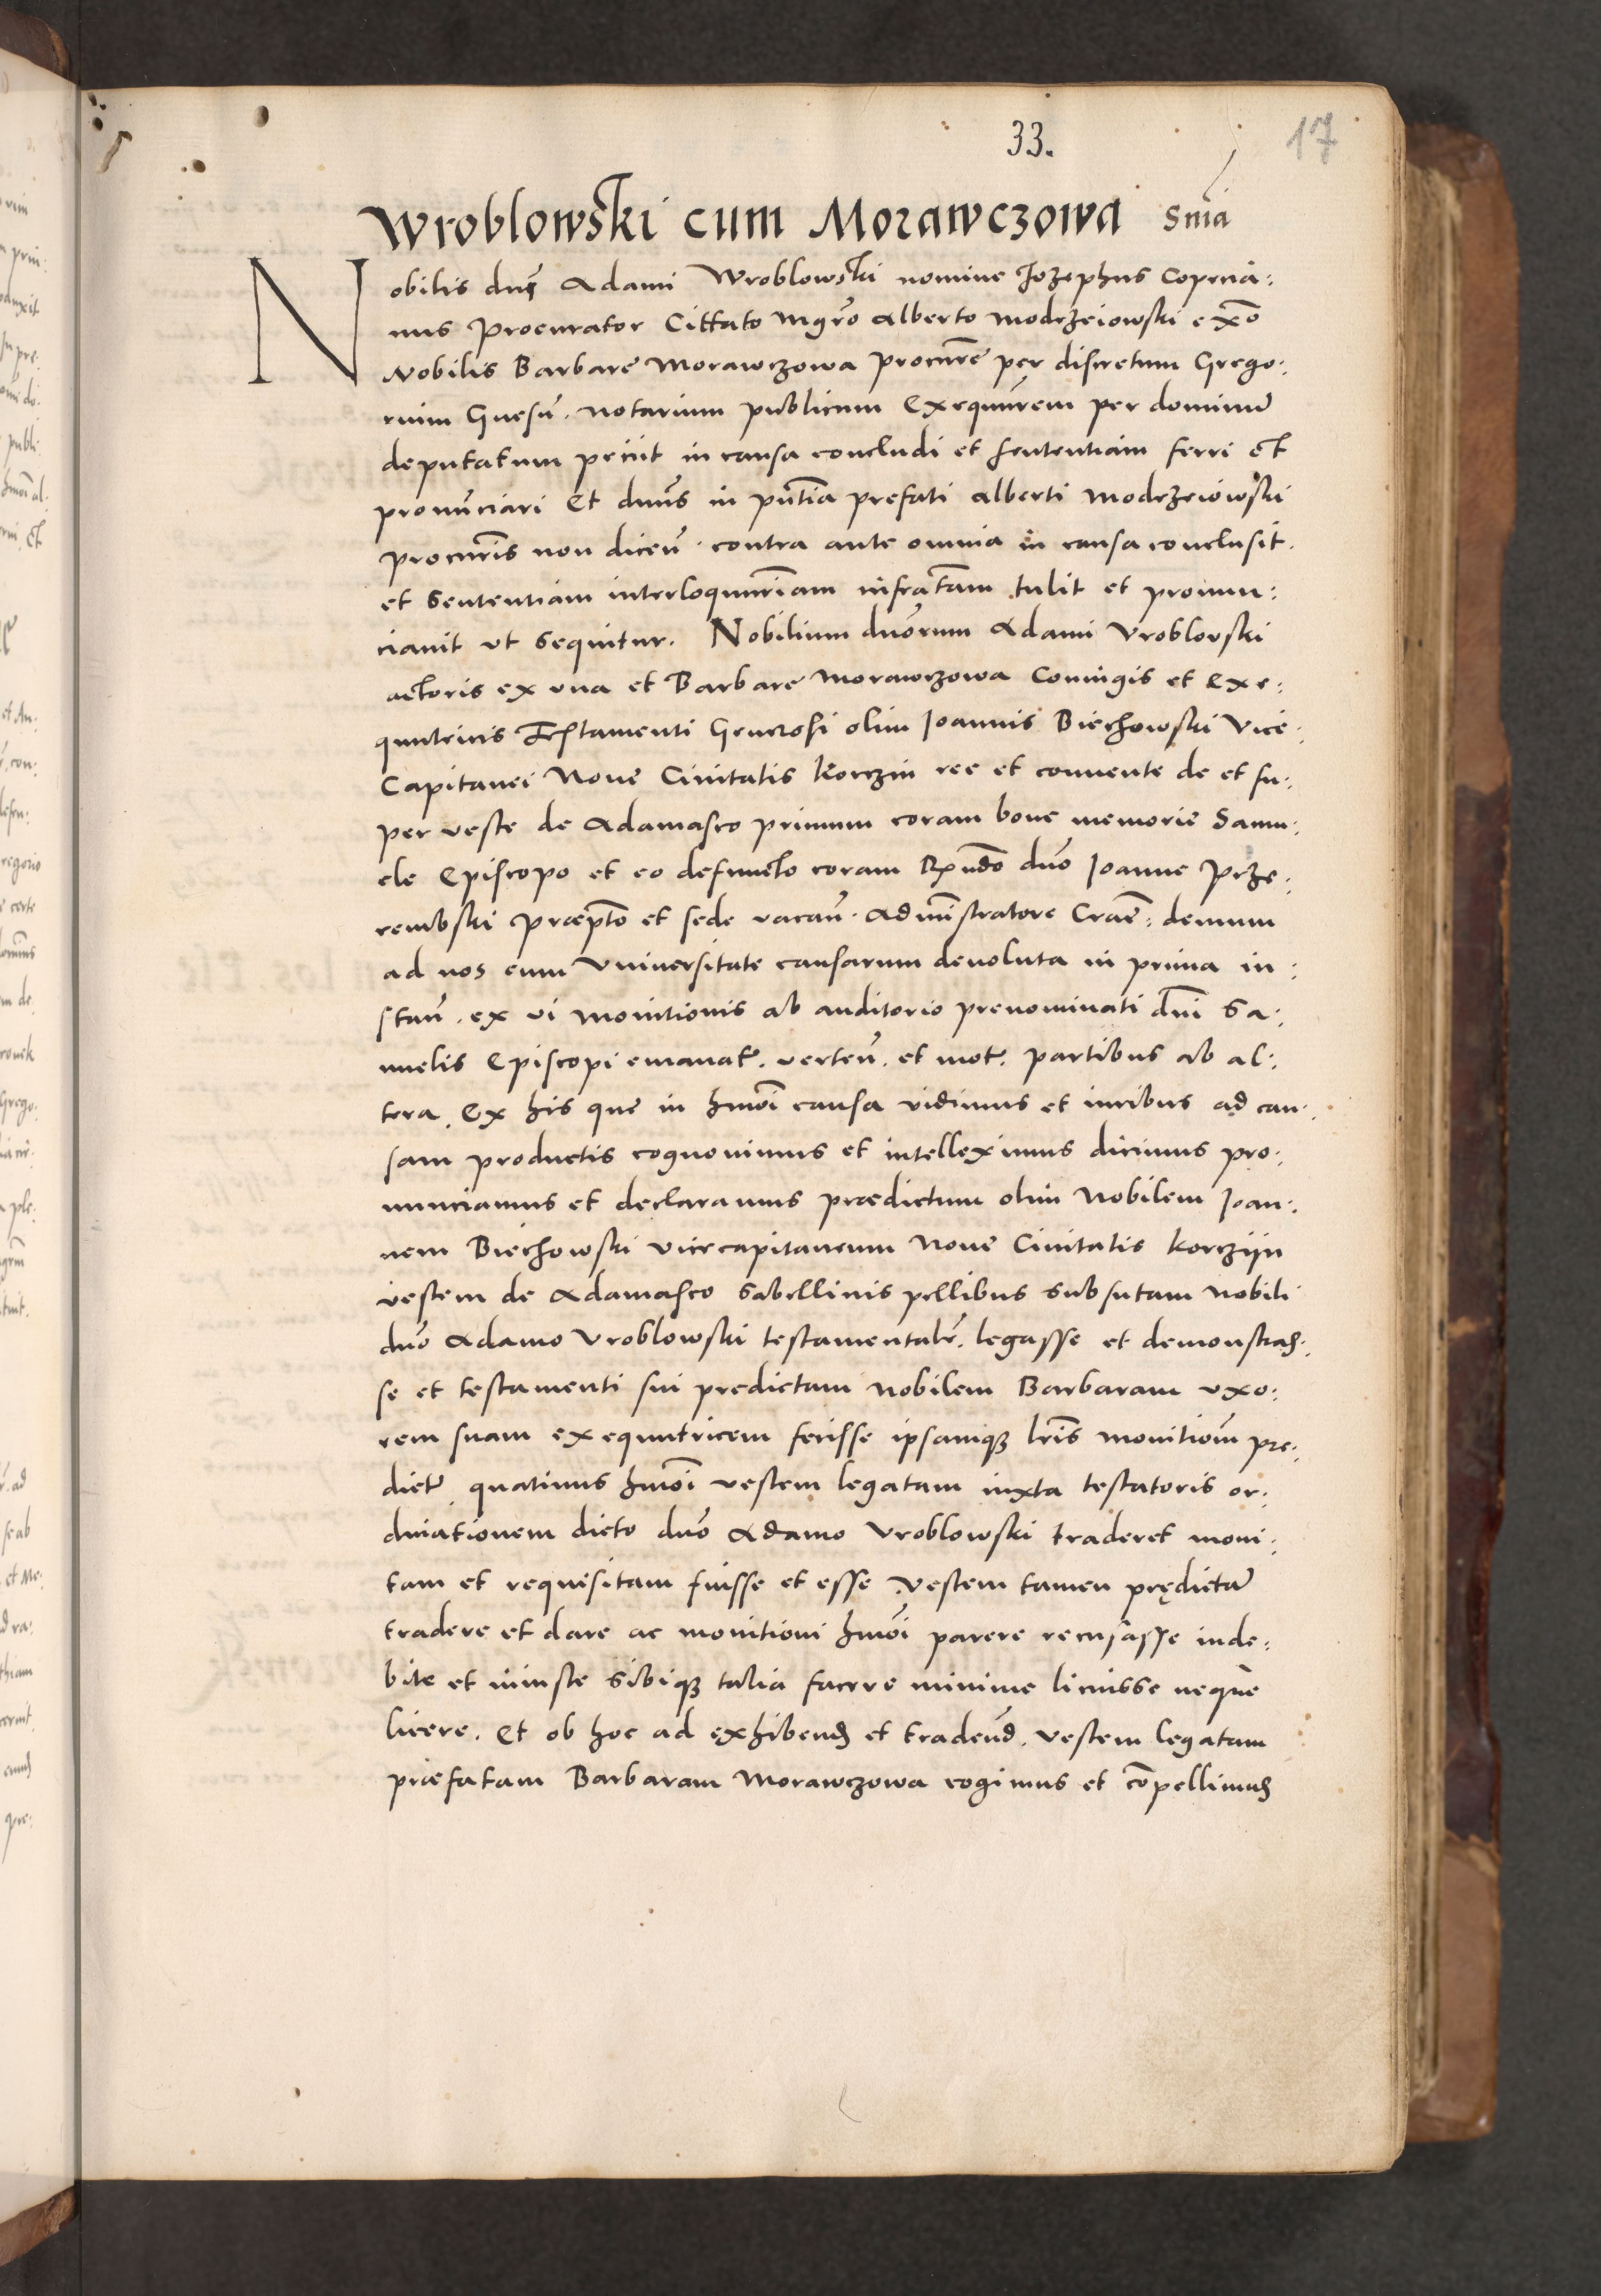 33.
17
Wroblowski cum Morawczowa Snia
Nobilis dns Adami Wroblowski nomine Jozephus Copena:
nus Procurator Cittato Mgro Alberto Modrzeiowski ex∞o
Nobilis Barbare Morawczowa Procure per discretum Grego:
rium Gnesn. notarium publicum Exequutrem per dominum
deputatum peciit in causa concludi et sententiam ferri et
pronunciari Et dnus in pntia prefati Alberti Modrzeiowski
procuris non dicen. contra ante omnia in causa conclusit.
et Sententiam interloquuriam infrascriptam tulit et pronun:
ciavit ut sequitur. Nobilium dnorum Adami Vroblovski
actoris ex una et Barbare Morawczowa Coniugis et Exe:
quutricis Testamenti Generosi olim Joannis Biechowski Vice:
Capitanei Nove Civitatis Korczin ree et convente de et su:
per veste de Adamasco primum coram bone memorie Samu:
ele Episcopo et eo defuncto coram Rndo dno Joanne Prze:
rembski Praepto et sede vacan. Administratore Crae: demum
ad nos cum Universitate causarum devoluta in prima in:
stan. ex vi monitionis ab auditorio prenominati dni Sa:
muelis Episcopi emanat. verten. et mot. partibus ab al:
tera. Ex his que in hmoi causa vidimus et iuribus ad cau:
sam productis cognovimus et intelleximus dicimus pro:
nunciamus et declaramus praedictum olim Nobilem Joan:
nem Biechowski vicecapitaneum Nove Civitatis Korczijn
vestem de Adamasco Sabellinis pellibus subsutam Nobili
dno Adamo Vroblowski testamentalr. legasse et demonstras:
se et testamenti sui predictam Nobilem Barbaram uxo:
rem suam exequutricem fecisse ipsamque lris monitiom pre:
dict. quatinus hmoi vestem legatam iuxta testatoris or:
dinationem dicto dno Adamo Vroblowski traderet moni:
tam et requisitam fuisse et esse vestem tamen prędictam
tradere et dare ac monitioni hmoi parere recusasse inde:
bite et iniuste sibique talia facere minime licuisse neque
licere. Et ob hoc ad exhibend et tradend. vestem legatam
praefatam Barbaram Morawczowa cogimus et copellimus